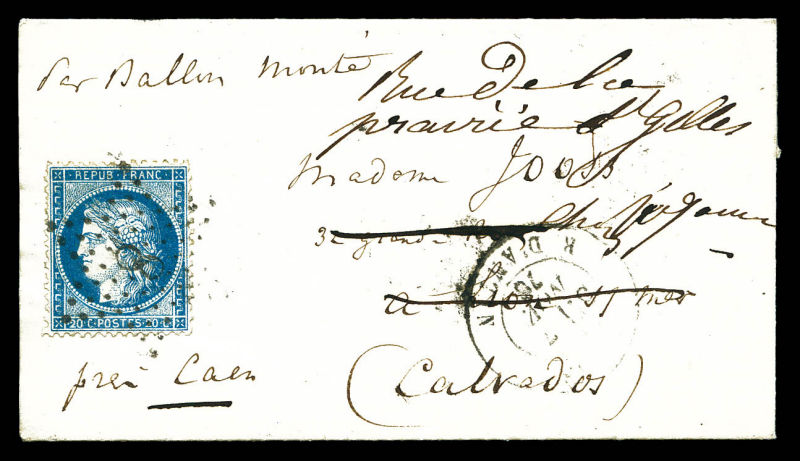 Par Ballon Monté
Rue De la
prairie St Gilles
Madame Joos
32 grande
à sur mer
REPUB. FRANC.
20 C. POSTES 20 C.
près Caen
(Calvados)